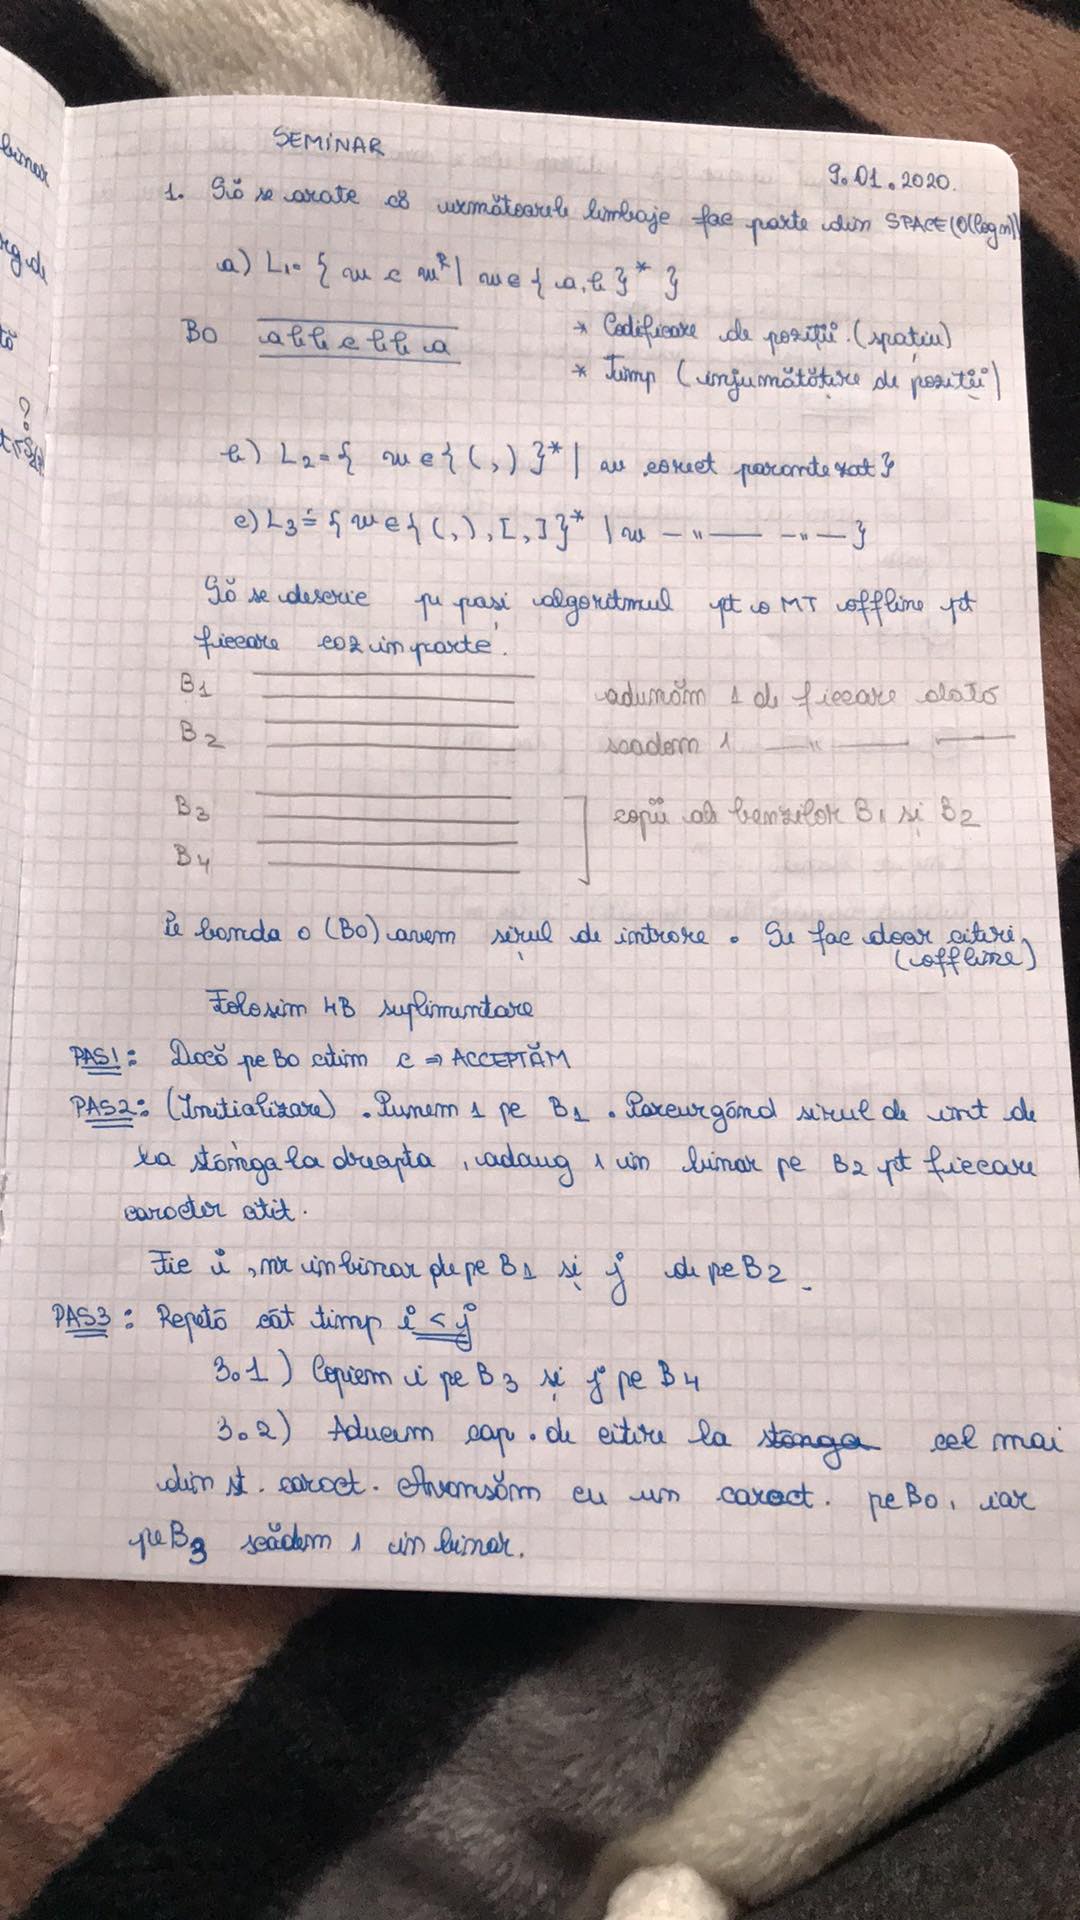 binar
rg. de
tă
?
SEMINAR
9.01.2020.
1. Să se arate că următoarele limbaje fac parte din SPACE(O(log n))
a) L₁= { w c wᴿ | w ∈ { a, b }* }
B0 abbcbba
* Codificare de poziții. (spațiu)
* Timp (înjumătățire de poziții)
b) L₂= { w ∈ { (, ) }* | w corect parantezat }
c) L₃= { w ∈ { (, ), [, ] }* | w —"— —"— }
Să se descrie pe pași algoritmul pt o MT offline pt
fiecare caz în parte.
B1 adunăm 1 de fiecare dată
B2 scadem 1 —"— —
B3 copii ale benzilor B1 și B2
B4
Pe banda 0 (B0) avem șirul de intrare. Se fac doar citiri,
(offline)
Folosim 4B suplimentare
PAS1: Dacă pe B0 citim c ⇒ ACCEPTĂM
PAS2: (Inițializare). Punem 1 pe B1. Parcurgând sirul de int de
la stânga la dreapta, adaug 1 în binar pe B2 pt fiecare
caracter citit.
Fie i, nr în binar de pe B1 și j de pe B2.
PAS3: Repetă cât timp i < j
3.1) Copiem i pe B3 și j pe B4
3.2) Aducem cap. de citire la stânga cel mai
din st. caract. Avansăm cu un caract. pe B0, iar
pe B3 scădem 1 în binar.